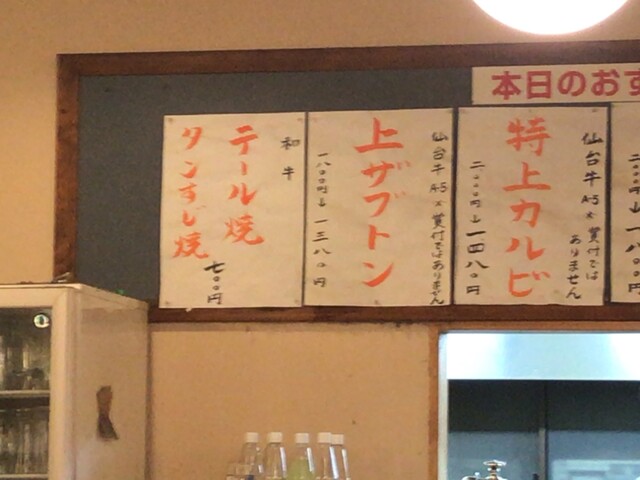 本日のおす
仙台牛A5ㄨ賞付ではありません
特上カルビ
二〇〇〇円↓一四八〇円
仙台牛A5ㄨ賞付ではありません
上ザブトン
一八〇〇円↓一三八〇円
和牛
テール焼
タンすじ焼
七〇〇円